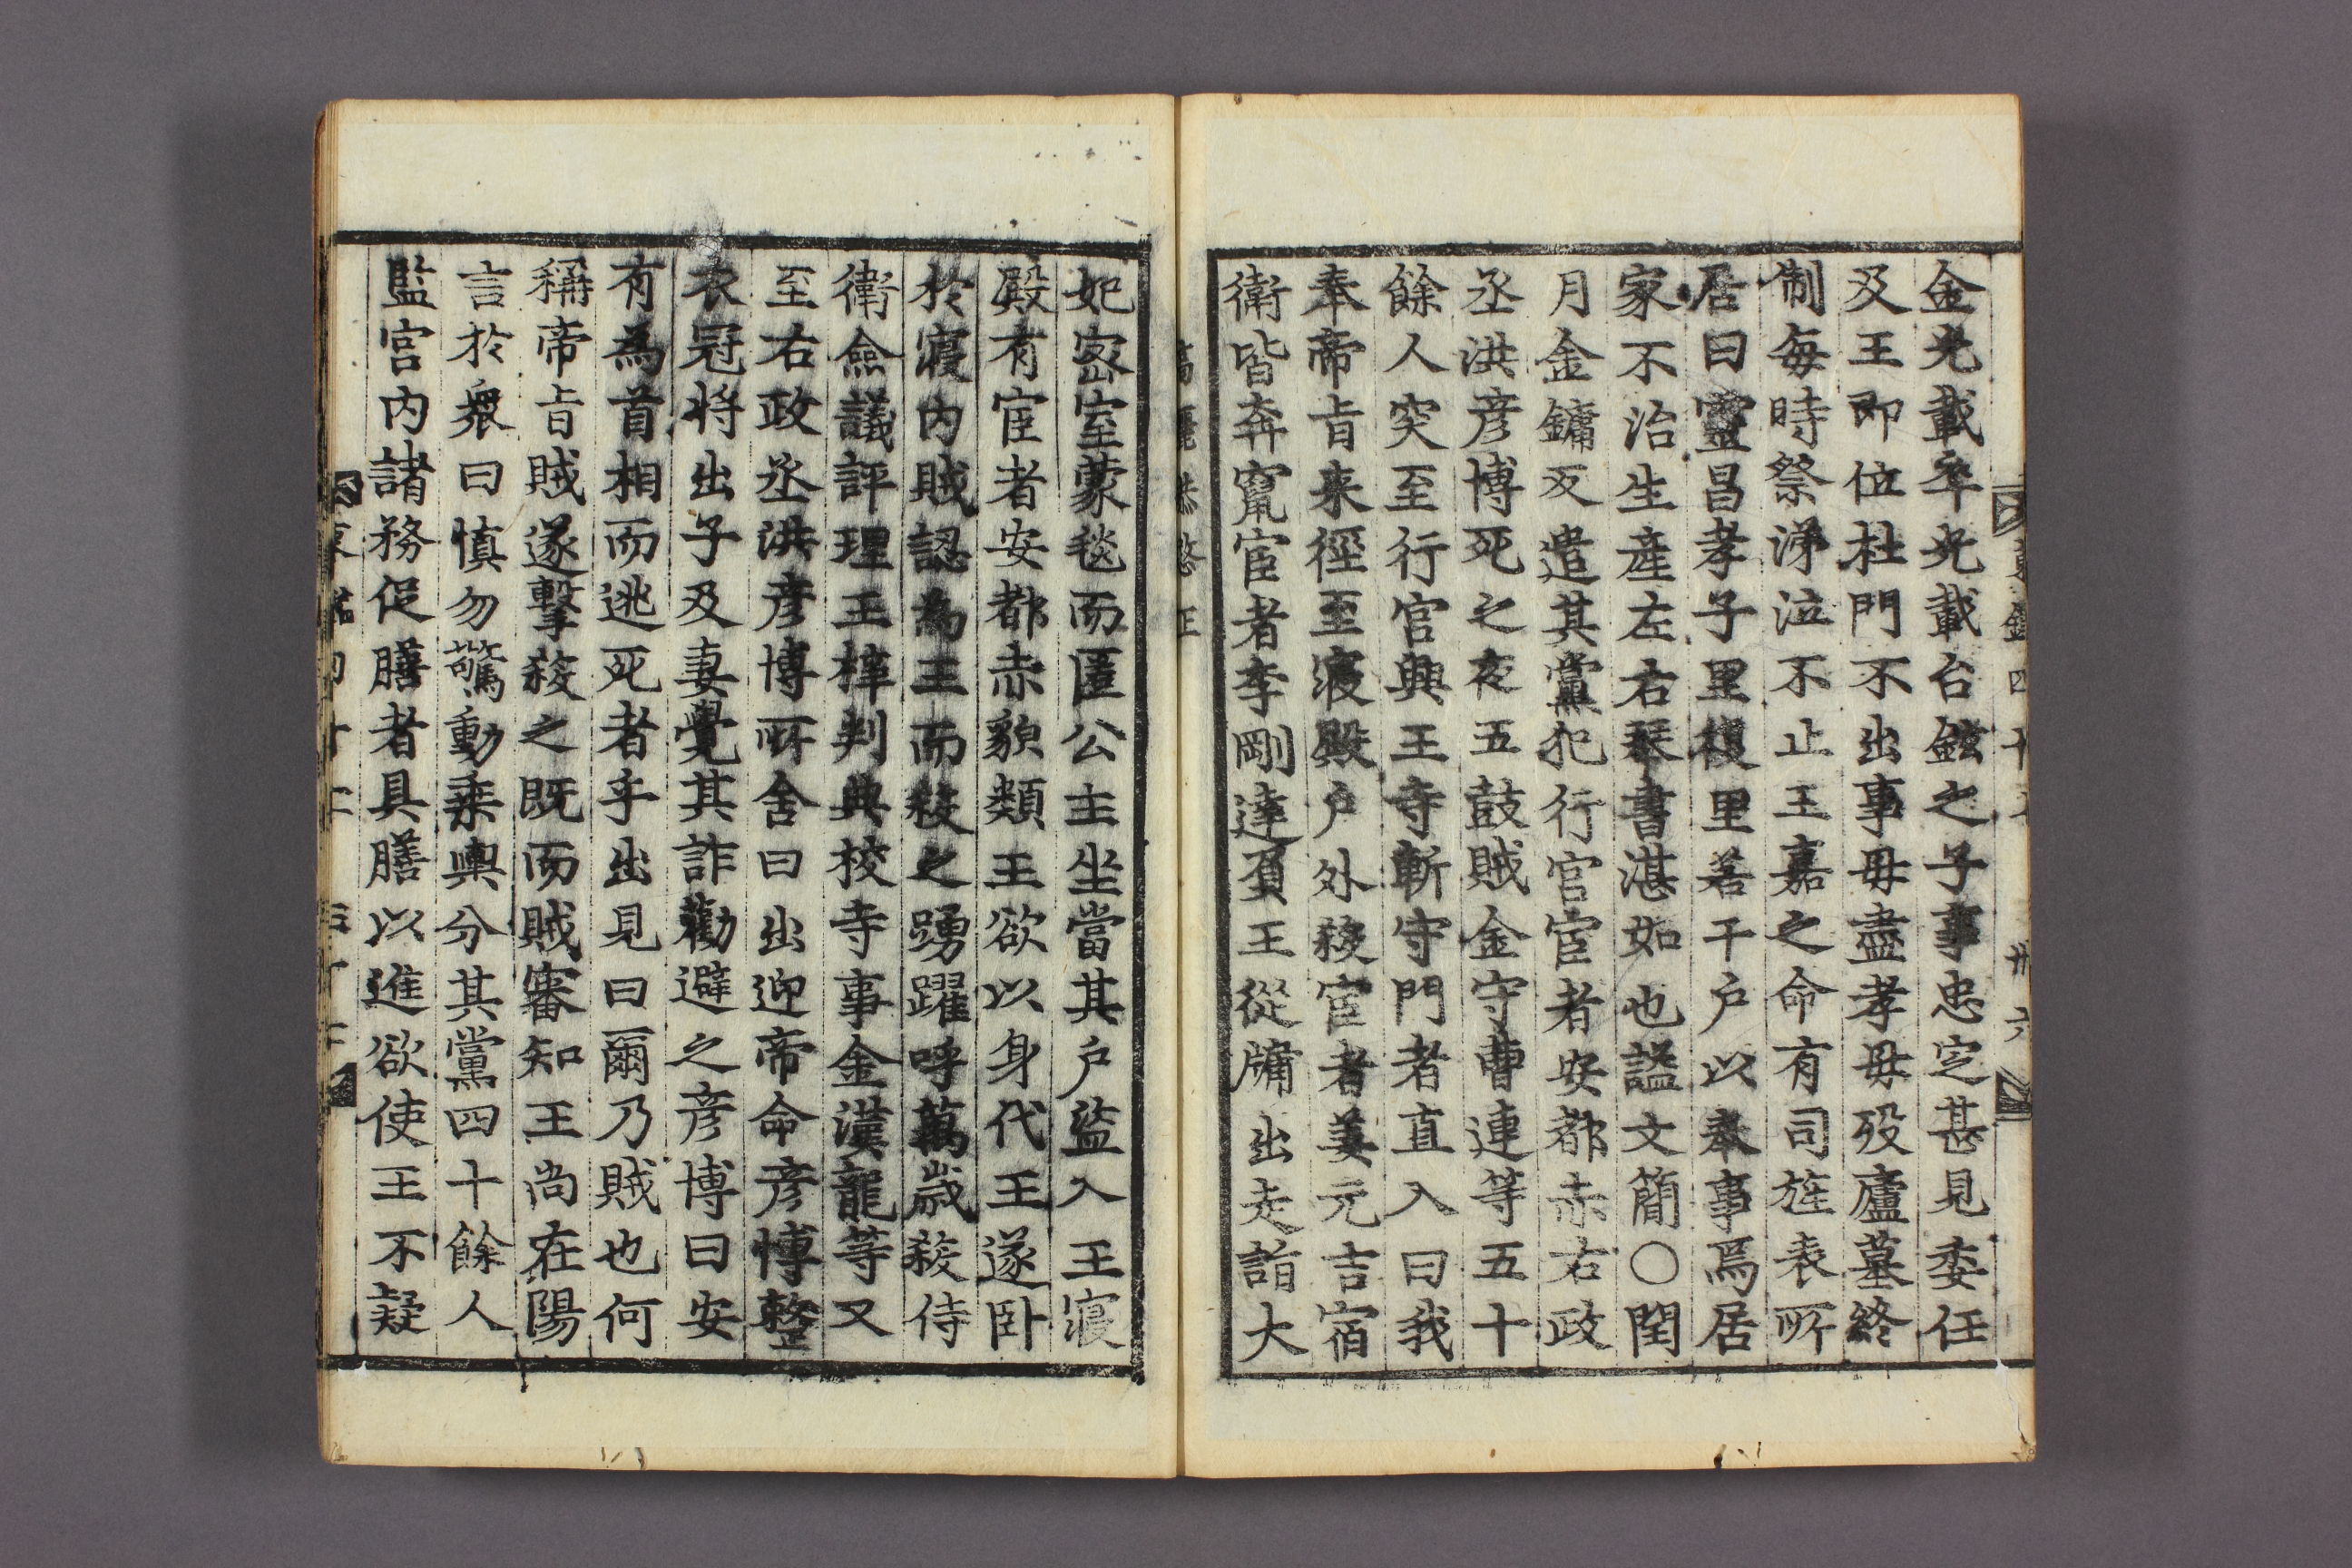 金光載卒光載台鉉之子事忠定甚見委任
及王即位杜門不出事母盡孝母歿廬墓終
制每時祭涕泣不止王嘉之命有司旌表所
居曰靈昌孝子里復里若干戶以奉事焉居
家不治生産左右琴書湛如也謚文簡〇閏
月金鏞及遣其黨犯行宮宦者安都赤右政
丞洪彦博死之夜五鼓賊金守曹連等五十
餘人突至行宮興王寺斬守門者直入曰我
奉帝旨来徑至寢殿戶外殺宦者姜元吉宿
衛皆奔竄宦者李剛達負王從牖出走詣大
妃密室蒙毯而匿公主坐當其戶盜入王寢
殿有宦者安都赤貌類王欲以身代王遂卧
於寢内賊認為王而殺之踴躍呼萬歲殺侍
衛僉議評理王梓判典校寺事金漢龍等又
至右政丞洪彦博所舍曰出迎帝命彦博整
衣冠将出子及妻覺其詐勸避之彦博曰安
有為首相而逃死者乎出見曰爾乃賊也何
稱帝旨賊遂擊殺之既而賊審知王尚在陽
言於衆曰慎勿驚動乘輿分其黨四十餘人
監宮内諸務促膳者具膳以進欲使王不疑